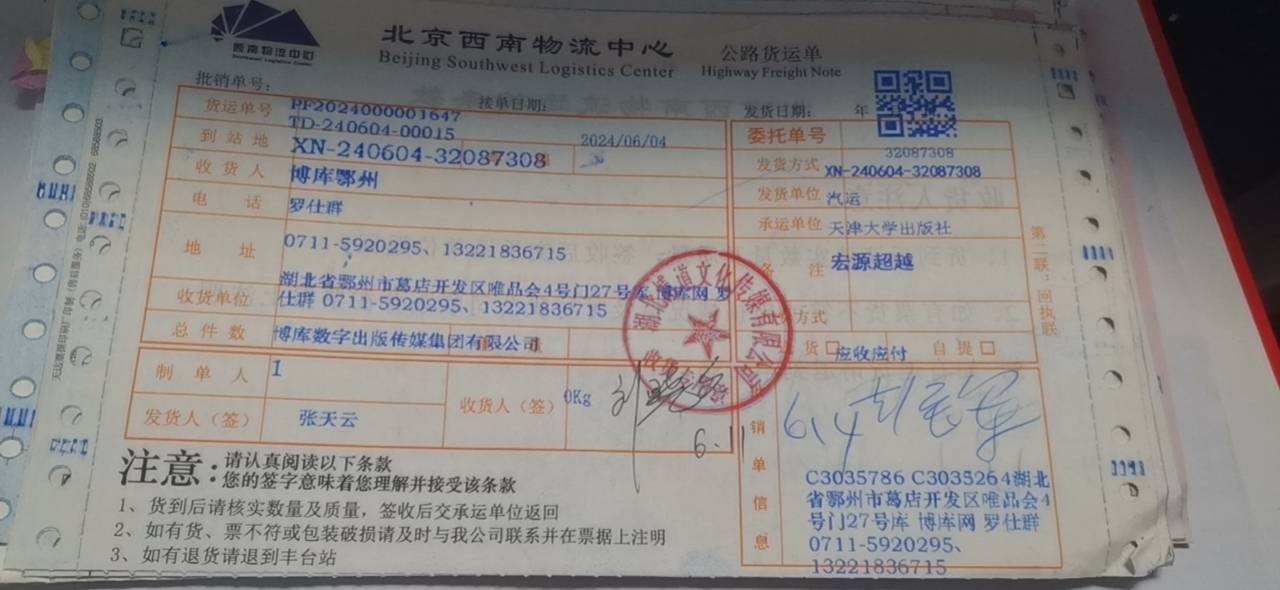 西南物流中心
Southwest Logistics Center
北京西南物流中心
Beijing Southwest Logistics Center
公路货运单
Highway Freight Note
批销单号：
接单日期：
发货日期： 年
货运单号
PF2024000001647
TD-240604-00015
到站地
XN-240604-32087308
2024/06/04
收货人
博库鄂州
电话
罗仕群
地址
0711-5920295、13221836715
湖北省鄂州市葛店开发区唯品会4号门27号库 博库网 罗
仕群 0711-5920295、13221836715
收货单位
总件数
博库数字出版传媒集团有限公司
制单人
1
发货人（签）
张天云
收货人（签）
0Kg
6.11
委托单号
32087308
发货方式
XN-240604-32087308
发货单位
汽运
承运单位
天津大学出版社
备注
宏源超越
方式
货
应收应付
自提
6.4
销单信息
C3035786 C3035264湖北
省鄂州市葛店开发区唯品会4
号门27号库 博库网 罗仕群
0711-5920295、
13221836715
第二联：回执联
注意：
请认真阅读以下条款
您的签字意味着您理解并接受该条款
1、货到后请核实数量及质量，签收后交承运单位返回
2、如有货、票不符或包装破损请及时与我公司联系并在票据上注明
3、如有退货请退到丰台站